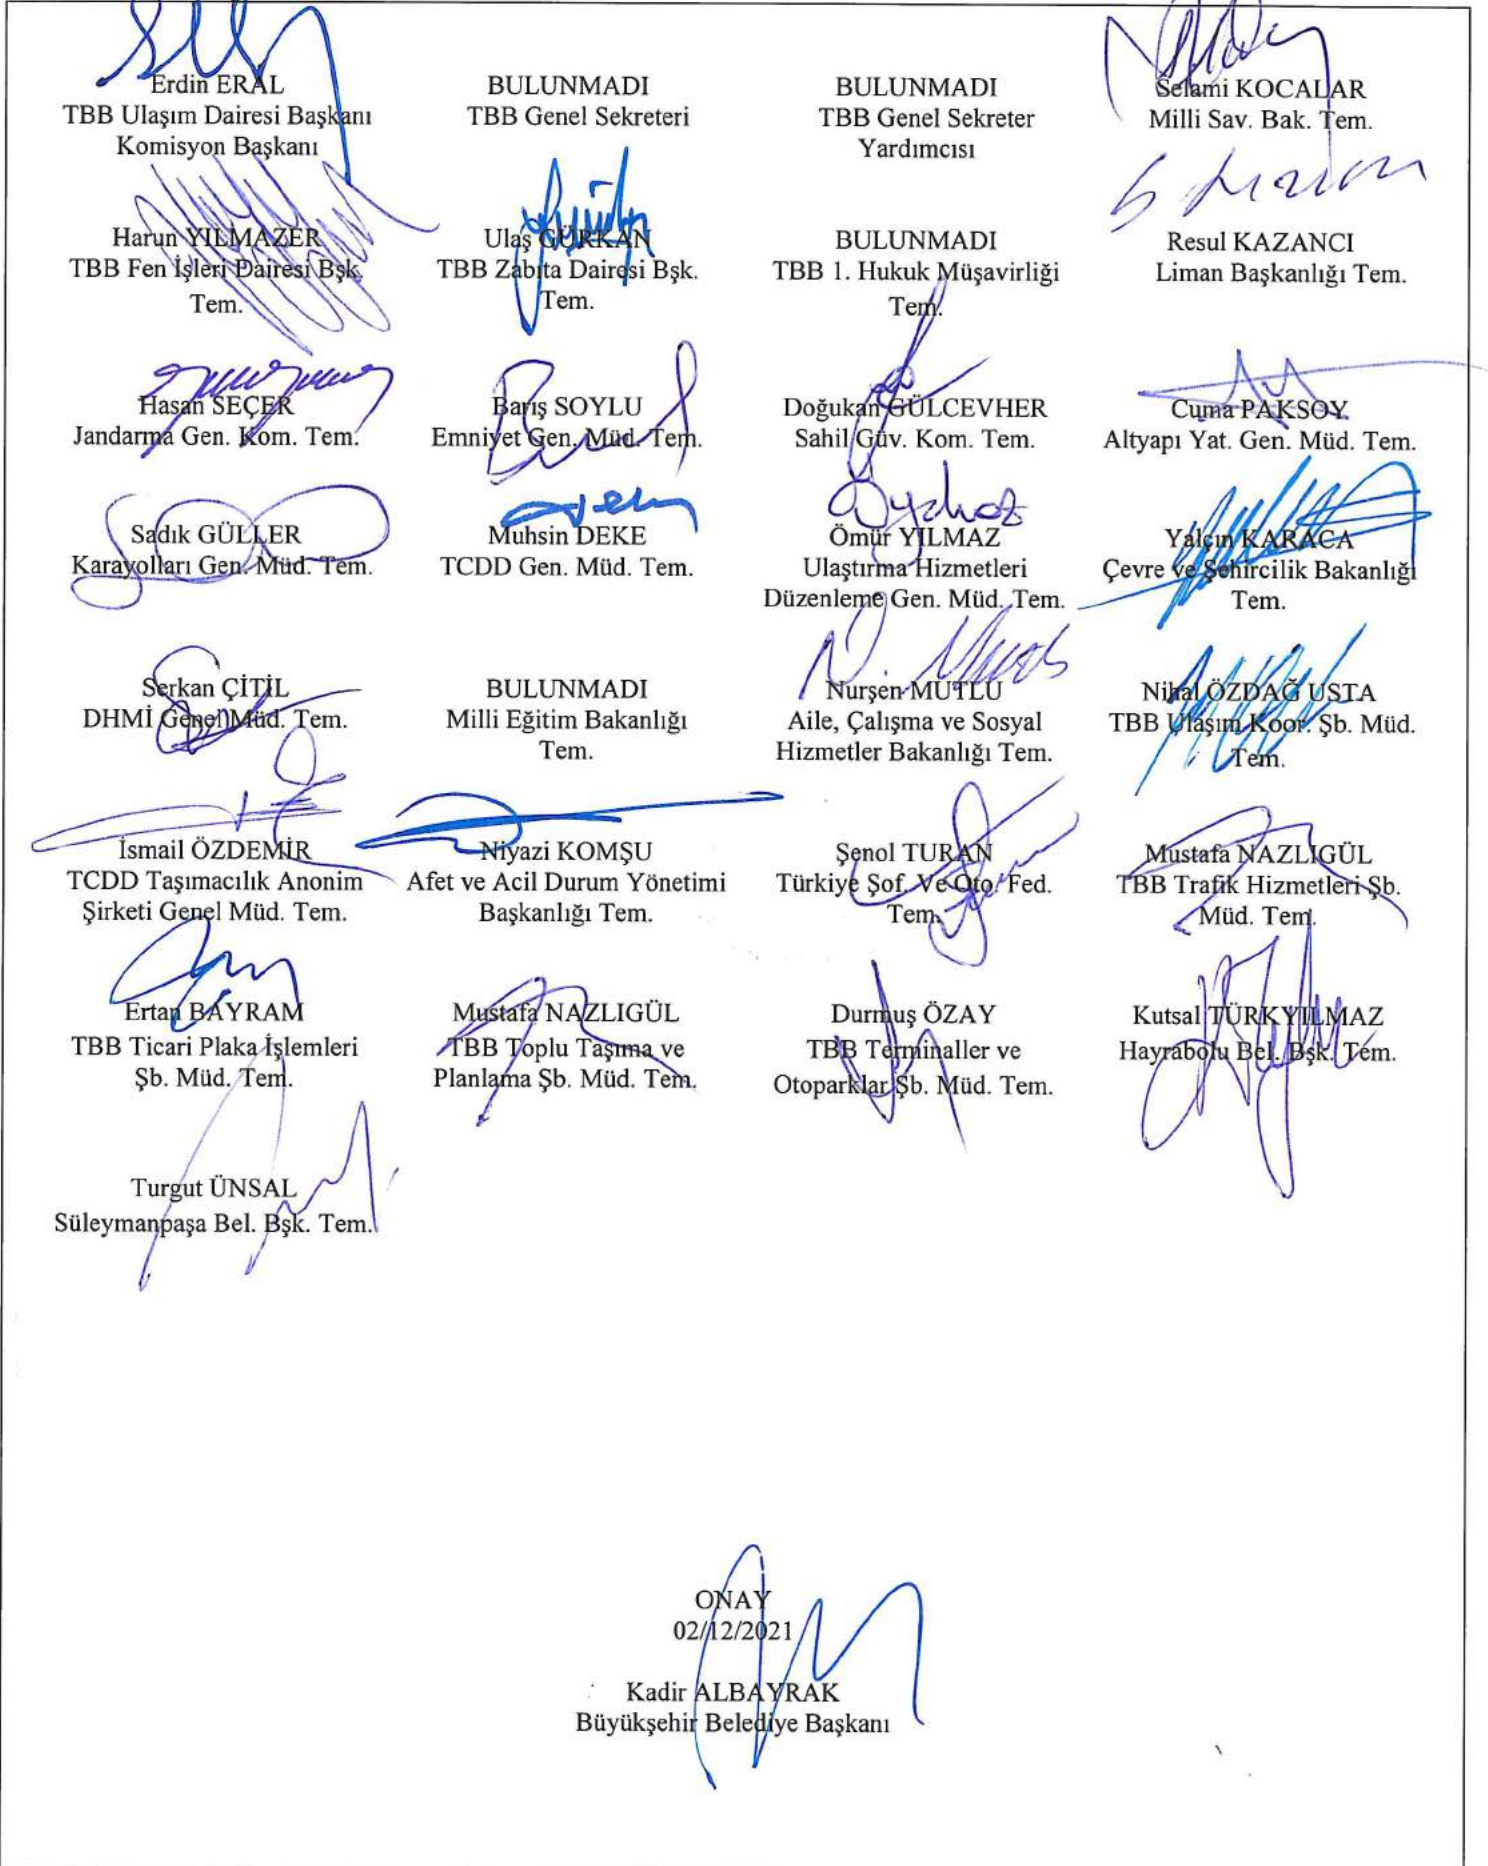 Erdin ERAL
TBB Ulaşım Dairesi Başkanı
Komisyon Başkanı
BULUNMADI
TBB Genel Sekreteri
BULUNMADI
TBB Genel Sekreter
Yardımcısı
Selami KOCALAR
Milli Sav. Bak. Tem.
Harun YILMAZER
TBB Fen İşleri Dairesi Bşk.
Tem.
Ulaş GÜRKAN
TBB Zabıta Dairesi Bşk.
Tem.
BULUNMADI
TBB 1. Hukuk Müşavirliği
Tem.
Resul KAZANCI
Liman Başkanlığı Tem.
Hasan SEÇER
Jandarma Gen. Kom. Tem.
Barış SOYLU
Emniyet Gen. Müd. Tem.
Doğukan GÜLCEVHER
Sahil Güv. Kom. Tem.
Cuma PAKSOY
Altyapı Yat. Gen. Müd. Tem.
Sadık GÜLLER
Karayolları Gen. Müd. Tem.
Muhsin DEKE
TCDD Gen. Müd. Tem.
Ömür YILMAZ
Ulaştırma Hizmetleri
Düzenleme Gen. Müd. Tem.
Yalçın KARACA
Çevre ve Şehircilik Bakanlığı
Tem.
Serkan ÇİTİL
DHMİ Genel Müd. Tem.
BULUNMADI
Milli Eğitim Bakanlığı
Tem.
Nurşen MUTLU
Aile, Çalışma ve Sosyal
Hizmetler Bakanlığı Tem.
Nihal ÖZDAĞ USTA
TBB Ulaşım Koor. Şb. Müd.
Tem.
İsmail ÖZDEMİR
TCDD Taşımacılık Anonim
Şirketi Genel Müd. Tem.
Niyazi KOMŞU
Afet ve Acil Durum Yönetimi
Başkanlığı Tem.
Şenol TURAN
Türkiye Şof. Ve Oto. Fed.
Tem.
Mustafa NAZLIGÜL
TBB Trafik Hizmetleri Şb.
Müd. Tem.
Ertan BAYRAM
TBB Ticari Plaka İşlemleri
Şb. Müd. Tem.
Mustafa NAZLIGÜL
TBB Toplu Taşıma ve
Planlama Şb. Müd. Tem.
Durmuş ÖZAY
TBB Terminaller ve
Otoparklar Şb. Müd. Tem.
Kutsal TÜRKYILMAZ
Hayrabolu Bel. Bşk. Tem.
Turgut ÜNSAL
Süleymanpaşa Bel. Bşk. Tem.
ONAY
02/12/2021
Kadir ALBAYRAK
Büyükşehir Belediye Başkanı